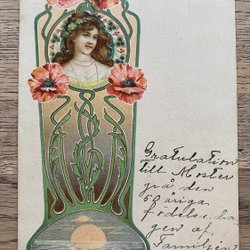 Gratulation
till Moster
på den
50 åriga
födelseda
gen af
Familjen